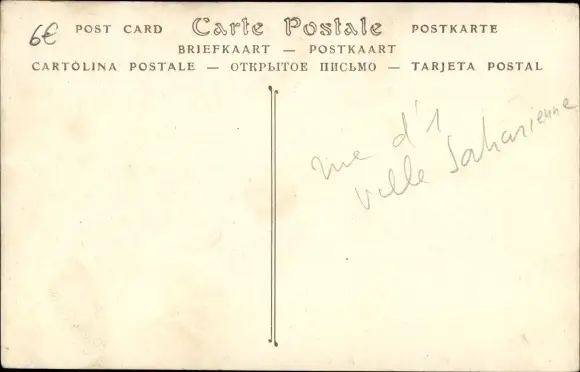 6€ POST CARD Carte Postale POSTKARTE
BRIEFKAART — POSTKAART
CARTOLINA POSTALE — ОТКРЫТОЕ ПИСЬМО — TARJETA POSTAL
rue d'1
ville Saharienne